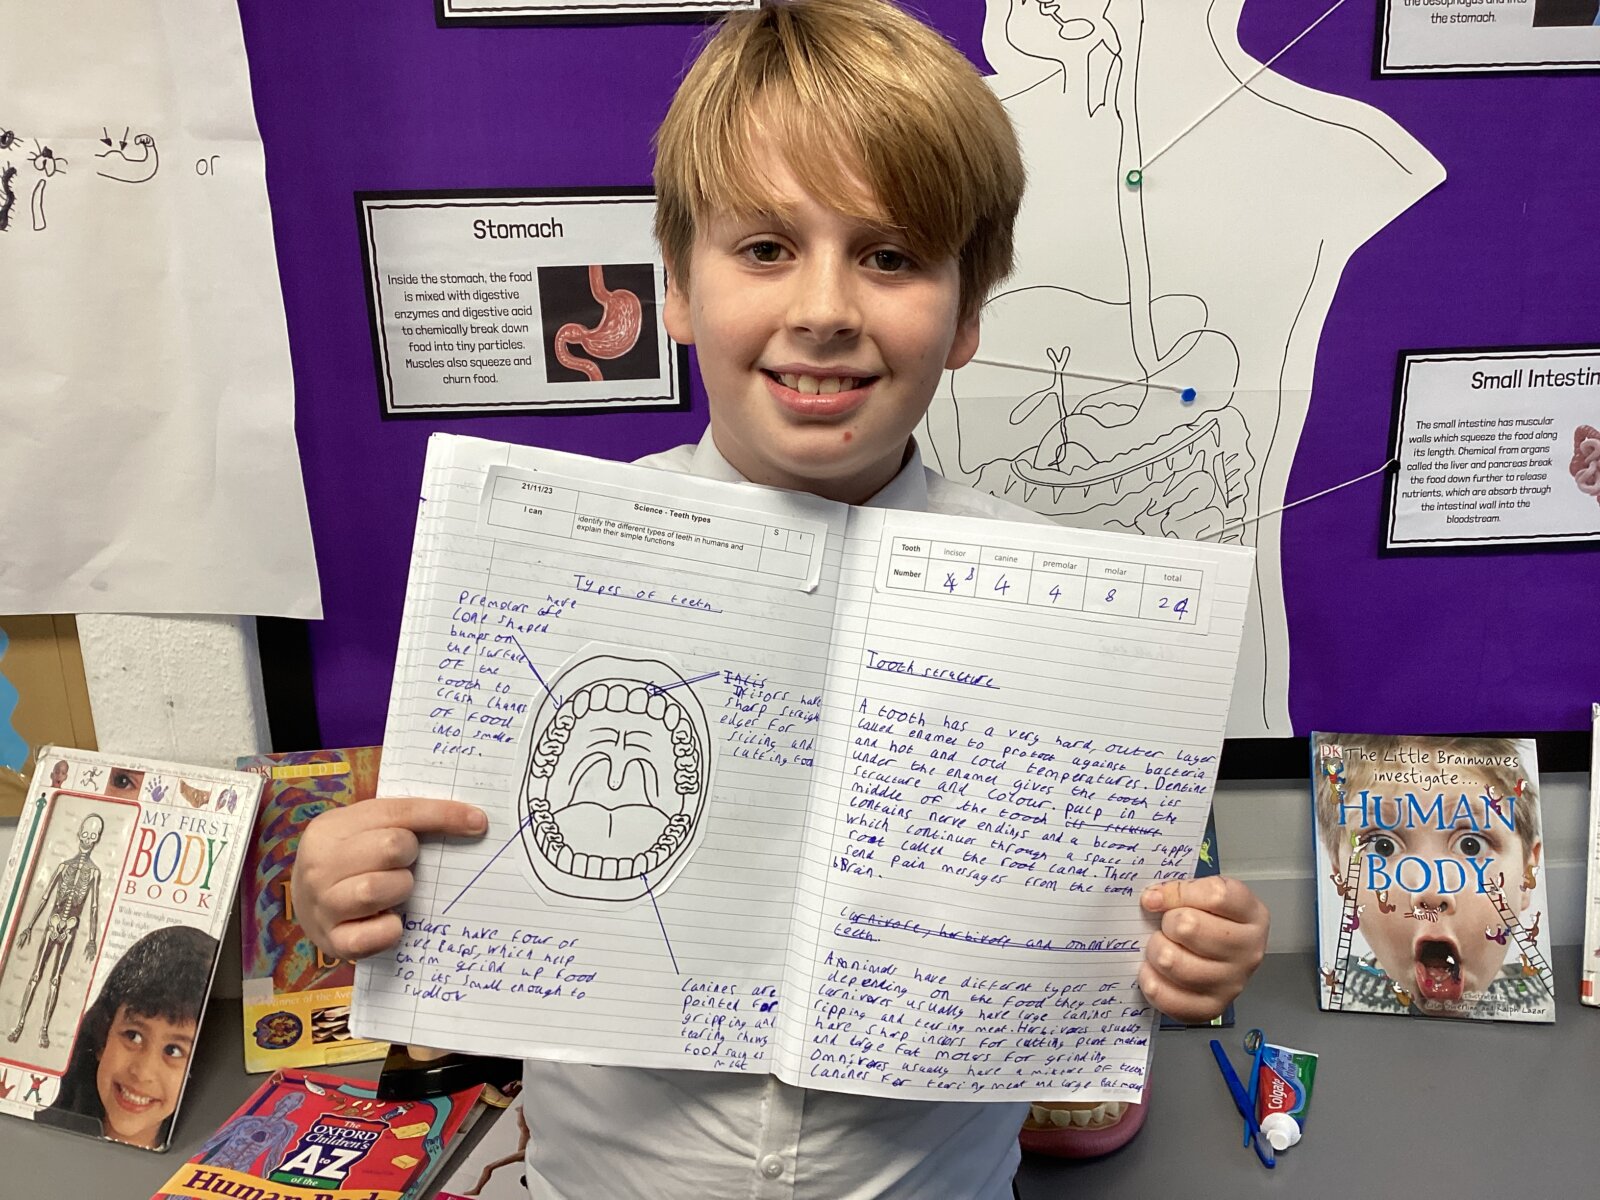 the oesophagus and into
the stomach.
or
Stomach
Inside the stomach, the food
is mixed with digestive
enzymes and digestive acid
to chemically break down
food into tiny particles.
Muscles also squeeze and
churn food.
Small Intestin
The small intestine has muscular
walls which squeeze the food along
its length. Chemical from organs
called the liver and pancreas break
the food down further to release
nutrients, which are absorb through
the intestinal wall into the
bloodstream.
21/11/23
Science - Teeth types
S
I
I can
identify the different types of teeth in humans and
explain their simple functions
Types of teeth
Premolars have
cone shaped
bumps on
the surface
of the
tooth to
crush chunks
of food
into smaller
pieces.
Incis
Incisors have
sharp straigh
edges for
slicing and
cutting food
olars have four or
ive casps, which help
them grind up food
so its small enough to
swallow
Canines are
pointed for
gripping and
tearing chewy
food such as
meat
Tooth incisor canine premolar molar total
Number 4 8 4 4 8 24
Tooth structure
A tooth has a very hard, outer layer
called enamel to protect against bacteria
and hot and cold temperatures. Dentine
under the enamel gives the tooth its
structure and colour. pulp in the
middle of the tooth its structure
contains nerve endings and a blood supply
which continues through a space in the
root called the root canal. These nerves
send pain messages from the tooth
Brain.
Carnivore, herbivore and omnivore
teeth.
Ananimals have differnt types of
depending on the food they eat.
Carnivores usually have large canines for
ripping and tearing meat. Herbivores usually
have sharp incisors for cutting plant
and large flat molars for grinding
Omnivores usually have a mixture of teeth:
Canines for tearing meat and large flat
MY FIRST
BODY
BOOK
With see-through pages
DK GUIDE
Winner of the Ave
The
OXFORD
Children's
A to Z
of the
Human Body
DK
The Little Brainwaves
investigate...
HUMAN
BODY
Illustrated by
Lisa Swerling and Ralph Lazar
Colgate